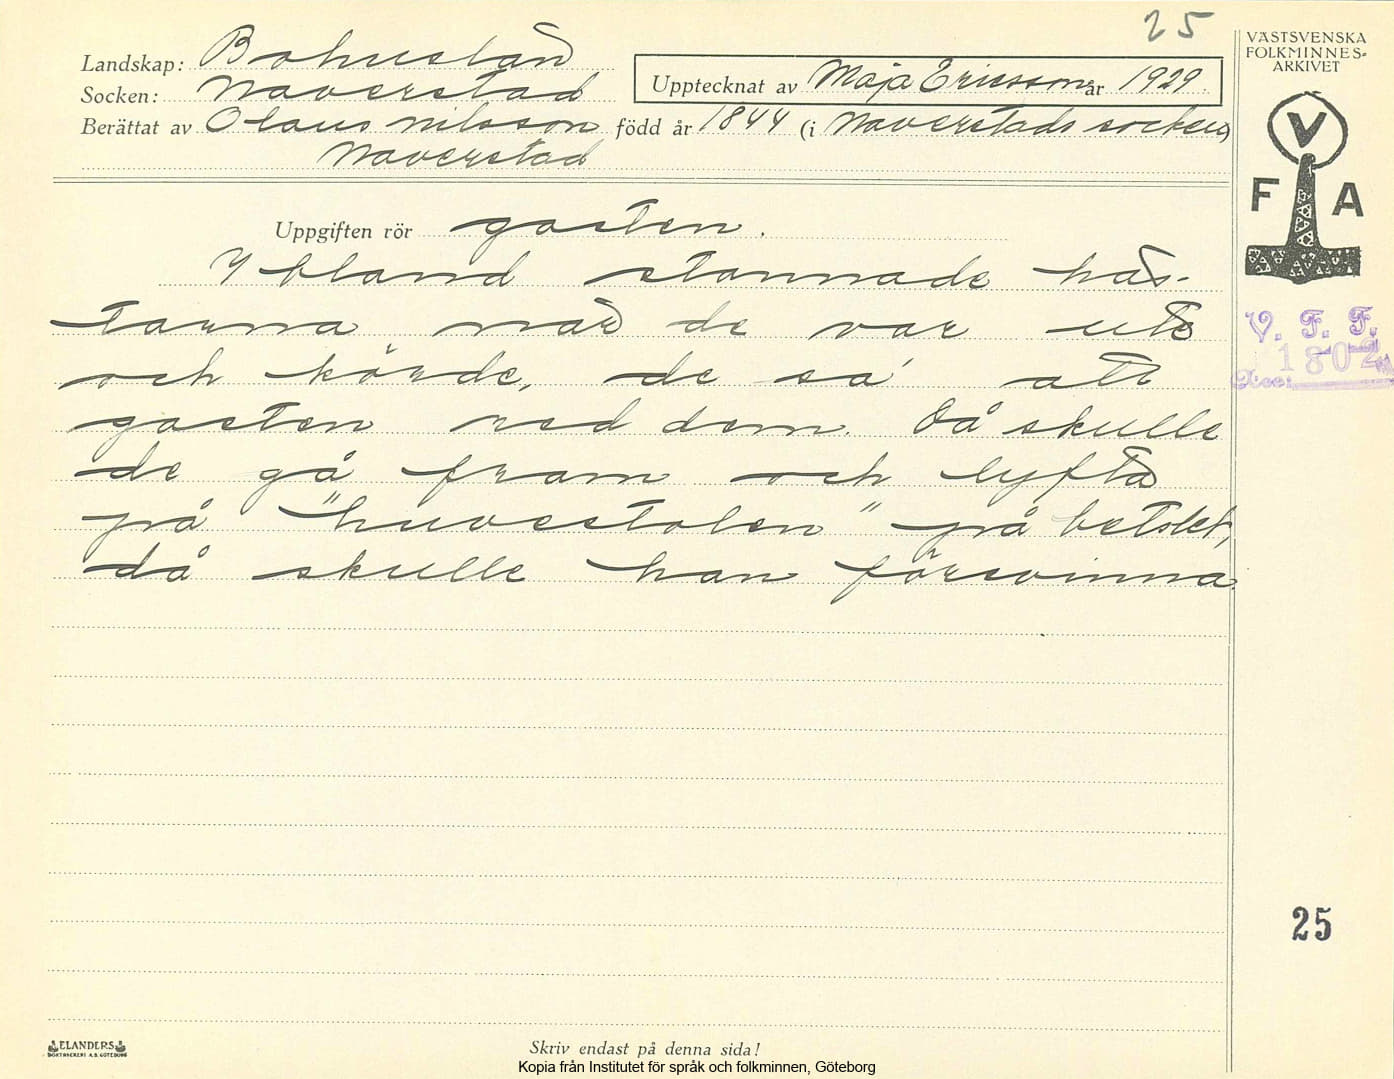 25
VÄSTSVENSKA
FOLKMINNES-
ARKIVET
Landskap: Bohuslän
Socken: Naverstad
Upptecknat av Maja Ericsson år 1929
Berättat av Olaus Nilsson född år 1844 (i Naverstads socken)
Naverstad
V
F A
Uppgiften rör gasten.
Ibland stannade häs-
tarna när de var ute
och körde, de sa' att
gasten red dem. Då skulle
de gå fram och lyfta
på "huvestolen" på betslet,
då skulle han försvinna.
V. F. F.
1802
Acc:
25
ELANDERS
BOKTRYCKERI A.B. GÖTEBORG
Skriv endast på denna sida!
Kopia från Institutet för språk och folkminnen, Göteborg